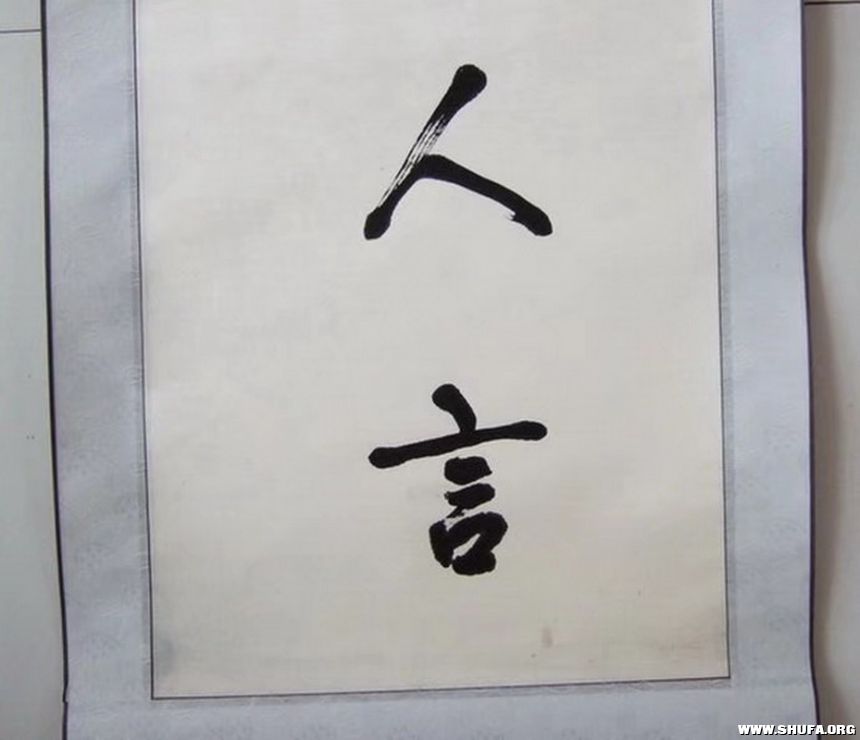 人
言
WWW.SHUFA.ORG